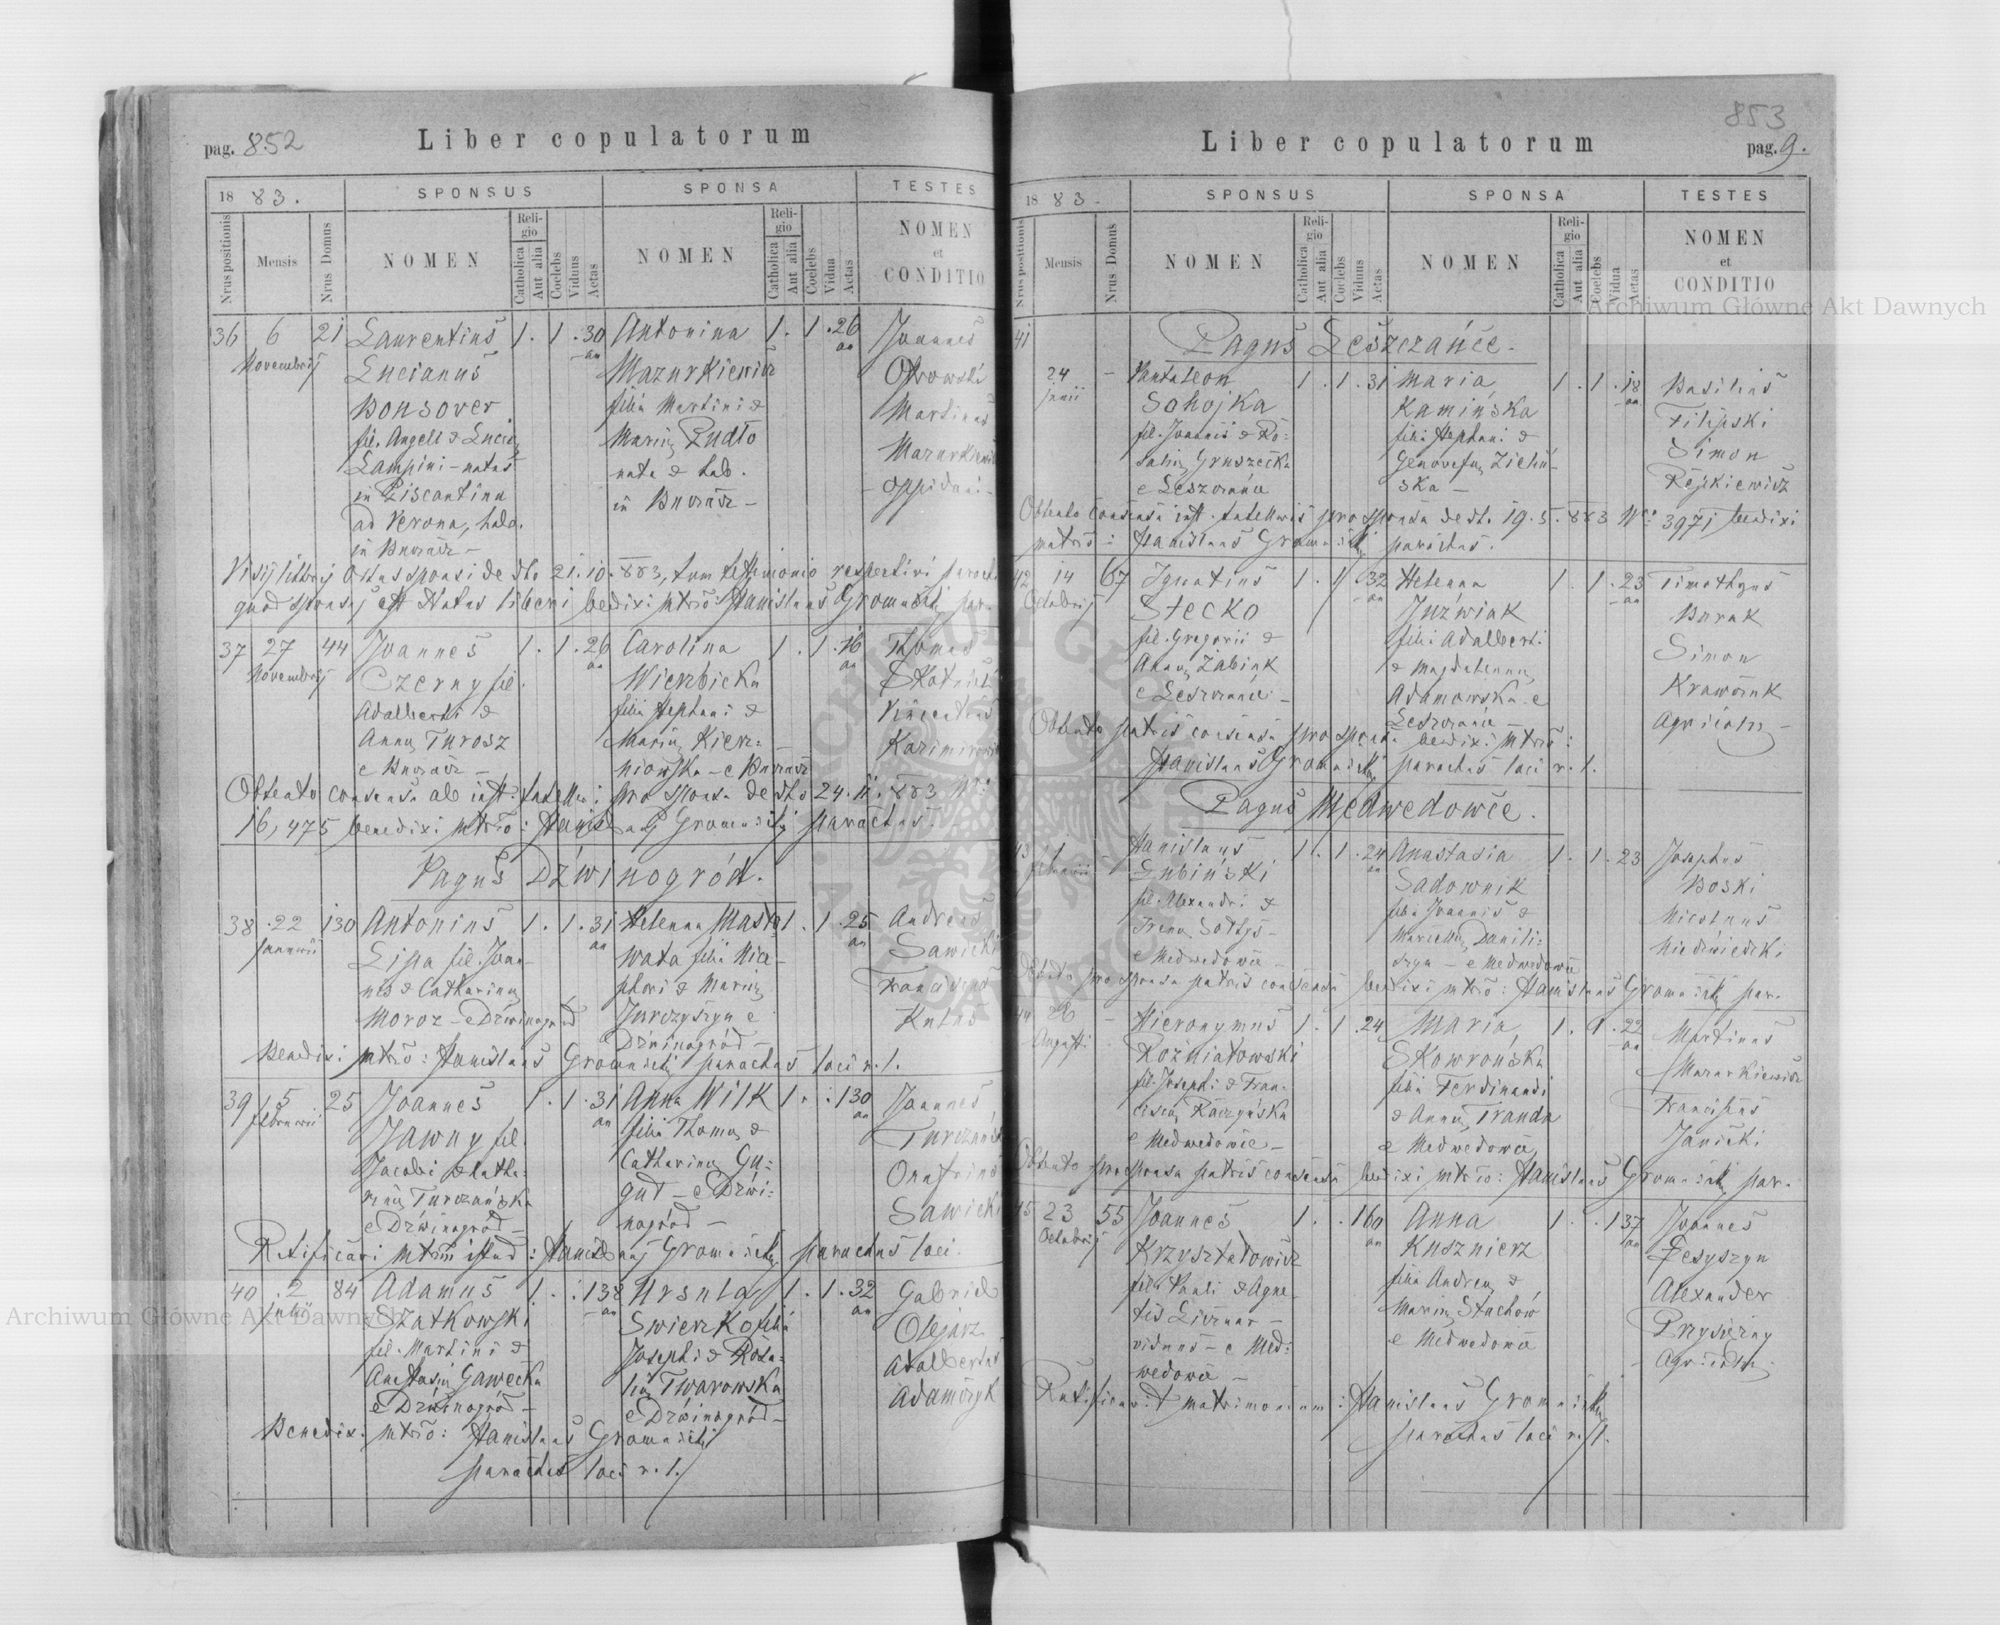 pag. 852
Liber copulatorum
18 83.
SPONSUS
SPONSA
TESTES
Nrus positionis
Mensis
Nrus Domus
NOMEN
Religio
Catholica
Aut alia
Coelebs
Viduus
Aetas
NOMEN
Religio
Catholica
Aut alia
Coelebs
Vidua
Aetas
NOMEN
et
CONDITIO
36 6 Novembrij 21
Laurentius
Lucianus
Bonsover
fil. Angeli & Lucię
Lampini - natus
in Piscantina
ad Verona, hab.
in Buczacz -
1. 1. 30 an
Antonina
Mazurkiewicz
filia Martini &
Marię Pudło
nata & hab.
in Buczacz -
1. 1. 26 an
Joannes
Martinus
Mazurkiewicz
- oppidani -
37 27 Novembrij 44
Joannes
Czerny fil.
Adalberti &
Annę Turosz
e Buczacz -
1. 1. 26 an
Carolina
Wierzbicka
filia Stephani &
Marię Kierz-
niowska - e Buczacz
1. 1. 16 an
Thomas
Obtento consensu ab inst. tutellari pro sponsa de dto 24.11.883 Nro
16,475 benedixi mtrio: Stanislaus Gromnicki parochus.
Pagus Dźwinogród.
38 .22 Januarii 130
Antonius
Lipa fil. Joan-
nis & Catharinę
Moroz - e Dźwinogród
1. 1. 31 an
Helenna Masto
wata filia Nice-
phori & Marię
Jurczyszyn e
Dźwinogród -
1. 1. 25 an
Andreas
Sawicki
Franciscus
Kulas
Benedixi mtrio: Stanislaus Gromnicki parochus loci r.l.
39 15 Februarii 25
Joannes
Jawny fil.
Jacobi & Catha-
rinę Turczańska
e Dźwinogród -
1. 1. 31 an
Anna Wilk
filia Thomę &
Catharinę Gu-
gut - e Dźwi-
nogród -
1. 1 30 an
Joannes
Turczański
Onufrius
Sawicki
Ratificavi mtrium istud: Stanislaus Gromnicki parochus loci.
40 .2 Julij 84
Adamus
Szatkowski
fil. Martini &
Anastasię Gawęcka
e Dźwinogród -
1. 1 38 an
Ursula
Swierzko filia
Josephi & Rosa-
lię Twarowska
e Dźwinogród -
1. 1. 32 an
Gabriel
Olejarz
Adalbertus
Adamczyk
Benedixi mtrio: Stanislaus Gromnicki
parochus loci r.l.
853
Liber copulatorum
pag. 9.
18 83 -
SPONSUS
SPONSA
TESTES
Nrus positionis
Mensis
Nrus Domus
NOMEN
Religio
Catholica
Aut alia
Coelebs
Viduus
Aetas
NOMEN
Religio
Catholica
Aut alia
Coelebs
Vidua
Aetas
NOMEN
et
CONDITIO
Pagus Leszczańce.
41 24 Junii -
Pantaleon
Sohojka
fil. Joannis & Ro-
salię Gruszecka
e Leszczańce
1. 1. 31
Maria
Kamińska
filia Stephani &
Genovefę Zieliń-
ska -
1. 1. 18 an
Basilius
Filipski
Simon
Obtento consensu inst. tutellaris pro sponsa de dto 19.5.883 Nro 3971 benedixi
matrio: Stanislaus Gromnicki parochus.
42 14 Octobrij 67
Ignatius
Stecko
fil. Gregorii &
Annę Żabiuk
e Leszczańce -
1. 1. 32 an
Helenna
Juźwiak
filia Adalberti
& Magdalennę
Adamowska e
Leszczańce -
1. 1. 23 an
Timotheus
Burak
Simon
Krawczuk
Agricolę -
Obtento patris consensu pro sponsa benedixi mtrio:
Stanislaus Gromnicki parochus loci r.l.
Pagus Medwedowce.
43
Stanislaus
Łubiński
fil. Alexandri &
Irenę Sołtys -
e Medwedowce -
1. 1. 24 an
Anastasia
Sadownik
filia Joannis &
Marcellę Danili-
szyn - e Medwedowce
1. 1. 23
Josephus
Boski
Nicolaus
Niedźwiedzki
Obtento pro sponsa patris consensu benedixi mtrio: Stanislaus Gromnicki par.
44 26 Augusti -
Hieronymus
Rożniatowski
fil. Josephi & Fran-
ciscę Raczyńska
e Medwedowce -
1. 1. 24
Maria
Skowrońska
filia Ferdinandi
& Annę Tranda
e Medwedowce
1. 1. 22 an
Martinus
Mazurkiewicz
Franciscus
Janicki
Obtento pro sponsa patris consensu benedixi mtrio: Stanislaus Gromnicki par.
45 23 Octobrij 55
Joannes
Krzyształowicz
filius Pauli & Agne-
tis Licznar -
viduus - e Med-
wedowce -
1. .1 60 an
Anna
Kusznierz
filia Andreę &
Marię Stachów
e Medwedowce
1. .1 37 an
Joannes
Fesyszyn
Alexander
Przysiężny
- Agricolę -
Ratificavit matrimonium: Stanislaus Gromnicki
parochus loci r.l.
Archiwum Główne Akt Dawnych
Archiwum Główne Akt Dawnych